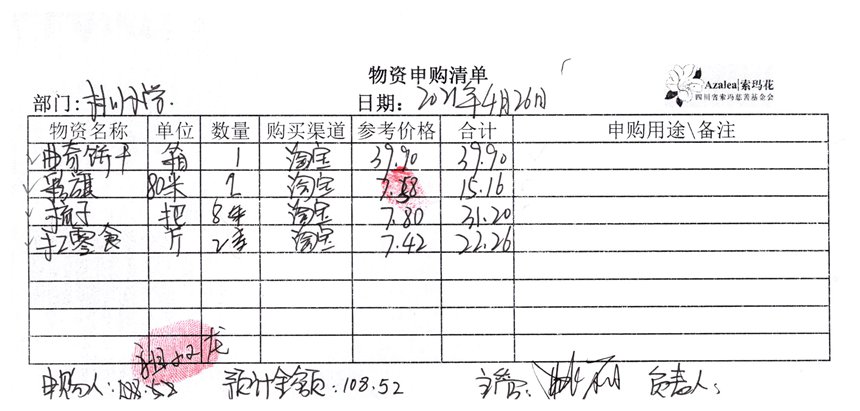 物资申购清单
Azalea|索玛花
四川省索玛慈善基金会
部门: 小学.
日期: 2021年4月26日
物资名称 单位 数量 购买渠道 参考价格 合计 申购用途\备注
曲奇饼干 箱 1 淘宝 39.90 39.90
彩旗 80米 2 淘宝 7.58 15.16
梳子 把 淘宝 7.80 31.20
零食 斤 淘宝 7.42 22.26
申购人: 108.52 预计金额: 108.52 主管: 负责人: